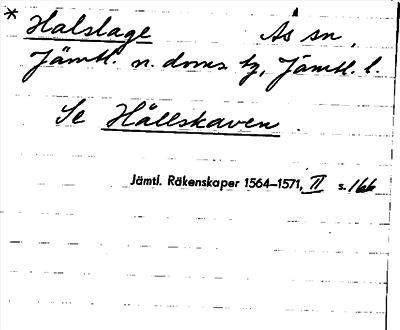 * Halslage Ås sn,
Jämtl. n. doms. tg, Jämtl. l.
Se Hällskaven.
Jämtl. Räkenskaper 1564–1571, II s. 166